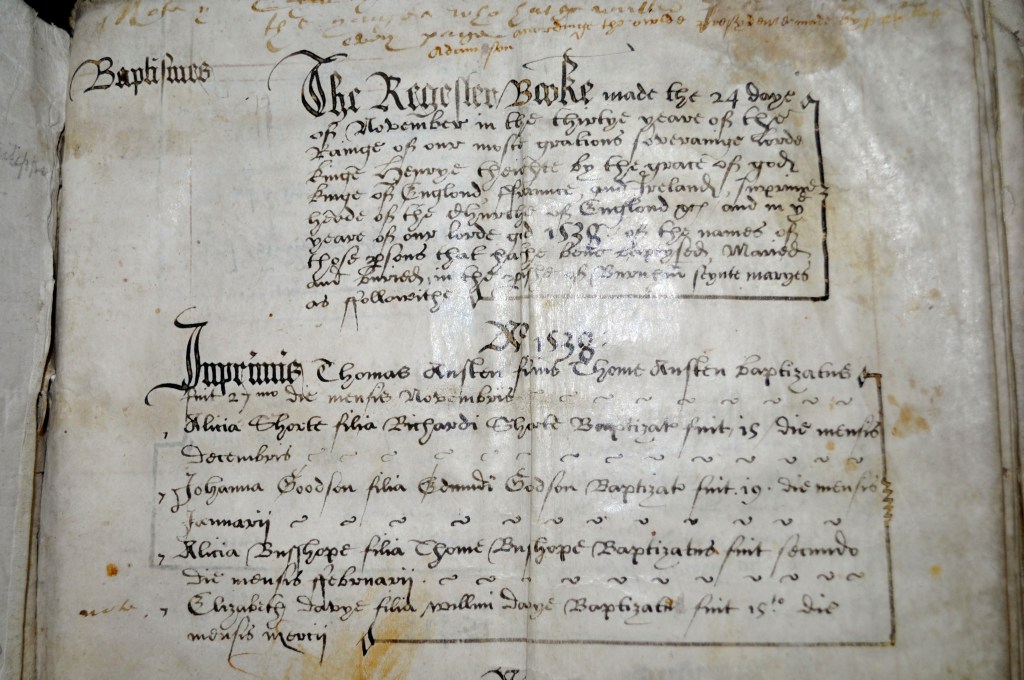 Note
the names who have written
every page accordinge the owlde
Adamson
Baptismes
The Regester Booke made the 24 daye
of November in the thirtye yeare of the
Rainge of our most gratious soverainge Lorde
kinge Henrye theighte by the grace of god
kinge of Englond ffraunce and Ireland, Supreme
heade of the Churche of Englond &c and in ye
yeare of our lorde god 1538 of the names of
those psons that have bene baptysed, Maried
and buried, in the pishe of Burnhm seynte maryes
as ffollowithe
Ao 1538
Inprimis Thomas Austen filius Thome Austen baptizatus
fuit 27mo die mensis Novembris
Alicia Shorte filia Richardi Shorte Baptizata fuit 15 die mensis
decembris
Johanna Goodson filia Edmudi Godson Baptizata fuit .19. die mensis
Januarii
Alicia Busshope filia Thome Bushope Baptizatus fuit secundo
die mensis ffebruarii.
note, Elizabeth davye filia willmi davye Baptizata fuit 15to die
mensis mercii